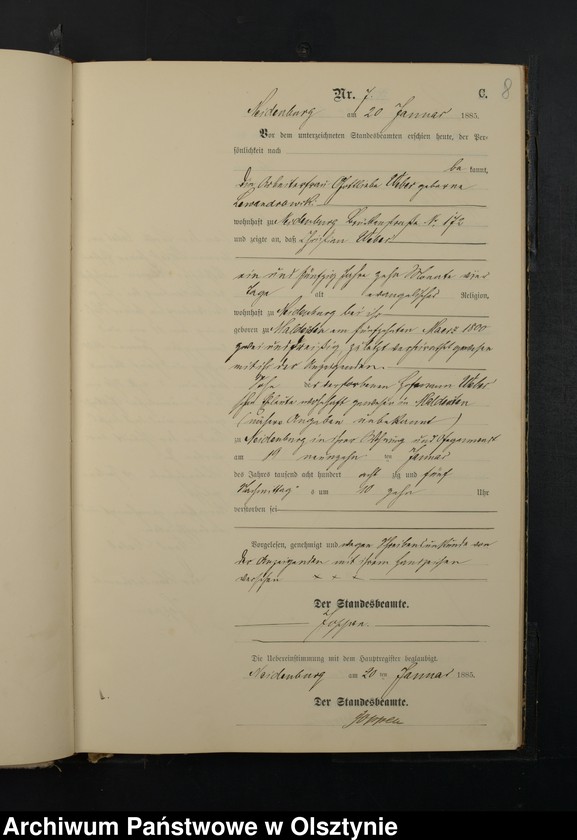 8
Nr. 7. C.
Neidenburg am 20 Januar 1885.
Vor dem unterzeichneten Standesbeamten erschien heute, der Per-
sönlichkeit nach
be kannt,
die Arbeiterfrau Gottliebe Weber geborne
wohnhaft zu Neidenburg No 172
und zeigte an, daß Christian Weber
ein und fünfzig Jahre zehn Monate vier
Tage alt evangelischer Religion,
wohnhaft zu Neidenburg bei ihr
geboren zu am fünfzehnten Maerz 1800
zwei und dreißig, zuletzt verheirathet gewesen
mit ihr der Anzeigenden.
Sohn des verstorbenen Weber
gewesen in
(nähere Angaben unbekannt)
zu Neidenburg in ihrer Wohnung und Gegenwart
am 19 neunzehn ten Januar
des Jahres tausend acht hundert acht zig und fünf
Nachmittag s um 10 zehn Uhr
verstorben sei
Vorgelesen, genehmigt und wegen Schreibensunkunde von
der Anzeigenden mit ihrem Handzeichen
versehen + + +
Der Standesbeamte.
Die Uebereinstimmung mit dem Hauptregister beglaubigt.
Neidenburg am 20 ten Januar 1885.
Der Standesbeamte.
Archiwum Państwowe w Olsztynie